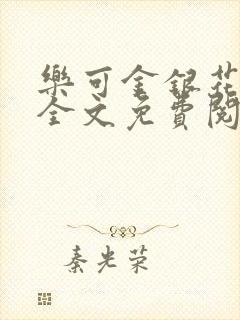 樂可金銀花
全文免費閱
秦光荣